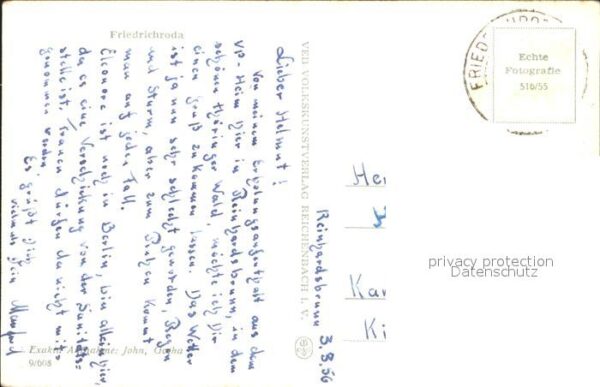 Friedrichroda
Lieber Helmut!
Von meinem Erholungsaufenthalt aus dem
VP-Heim hier in Reinhardsbrunn, in dem
schönen Thüringer Wald möchte ich Dir
einen Gruß zukommen lassen. Das Wetter
ist ja nun sehr schlecht geworden, Regen
und Sturm, aber zum Ruhen kommt
man auf jeden Fall.
Eleonore ist noch in Berlin, bin allein hier,
da es eine Verschickung von der Sanitäts=
stelle ist. Frauen dürfen da nicht mit=
genommen werden.
Es grüßt Dich
vielmals Dein Manfred
Exakta Aufnahme: John, Gotha
9/608
VEB VOLKSKUNSTVERLAG REICHENBACH I. V.
Reinhardsbrunn
3.8.56
FRIED
Echte
Fotografie
510/55
He
Ka
Ki
privacy protection
Datenschutz